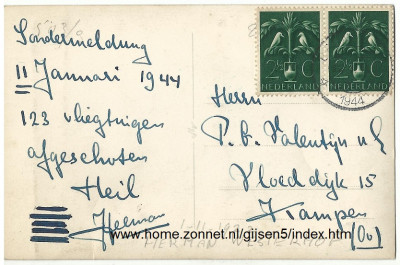 Sondermeldung
11 Januari 1944
123 vliegtuigen
afgeschoten
Heil
Herman
2½ C
NEDERLAND
2½ C
NEDERLAND
1944
Herrn
P. b. Valentijn
Vloeddijk 15
Kampen
(Ov)
HERMAN WESTERHOF
www.home.zonnet.nl/gijsen5/index.htm